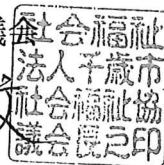 社会福祉
法人千歳市
社会福祉協
議会長之印